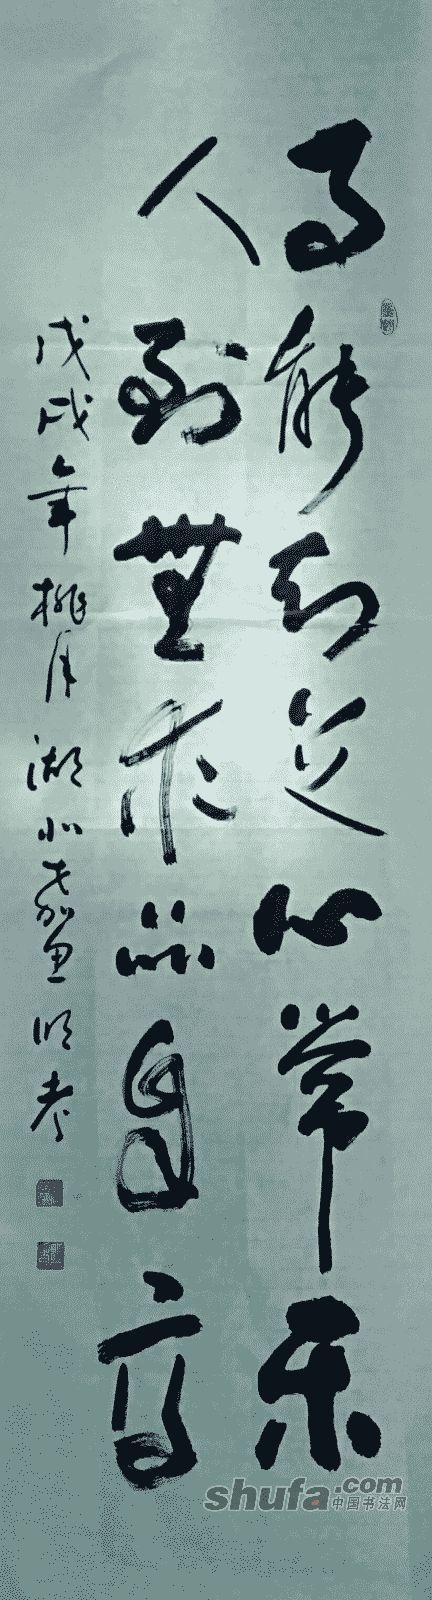 事能知足心常乐
人到無求品自高
戊戌年桃月湖北
shufa.com
中国书法网